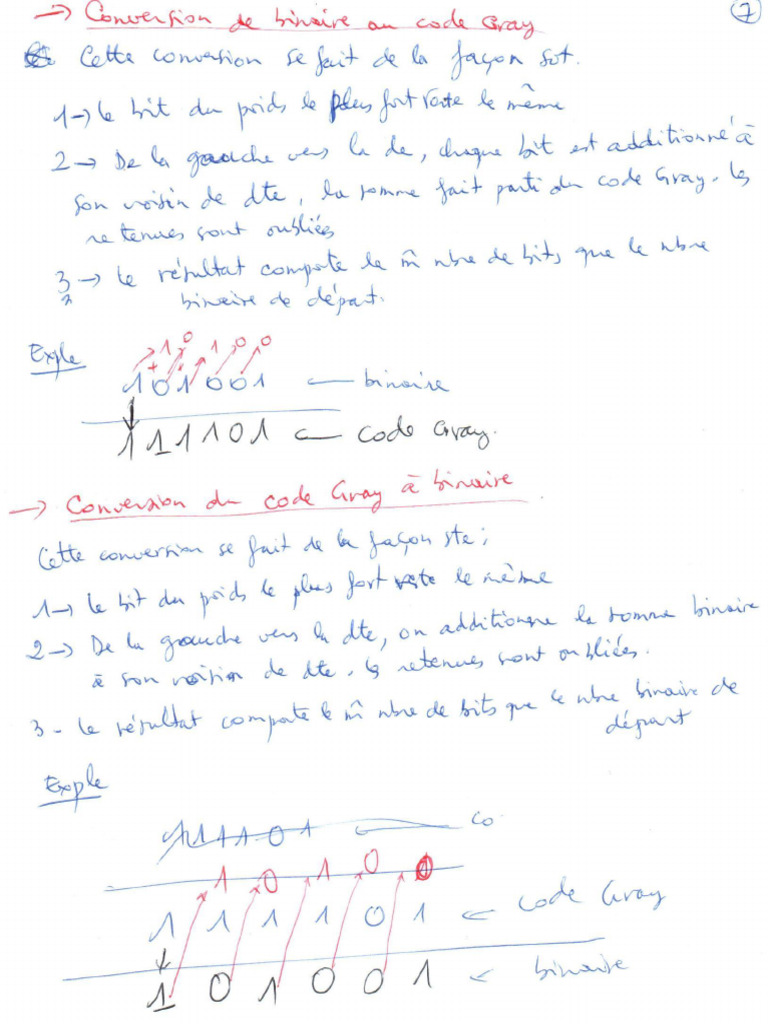 7
→ Conversion de binaire au code Gray
Cette conversion se fait de la façon svt.
1→ le bit du poids le plus fort reste le même
2→ De la gauche vers la de, chaque bit est additionné à
son voisin de dte, la somme fait parti du code Gray. les
retenues sont oubliées
3→ le résultat compote le m̂ nbre de bits que le nbre
binaire de départ.
Exple
1 0 1 0 0
+
1 0 1 0 0 1 ← binaire
1 1 1 1 0 1 ← code Gray.
→ Conversion du code Gray à binaire
Cette conversion se fait de la façon ste;
1→ le bit du poids le plus fort reste le même
2→ De la gauche vers la dte, on additionne la somme binaire
à son voisin de dte. les retenues sont oubliées.
3- le résultat compote le m̂ nbre de bits que le nbre binaire de
départ
Exple
1 1 1 1 0 1 ← co
1 0 1 0 0
1 1 1 1 0 1 ← code Gray
1 0 1 0 0 1 ← binaire